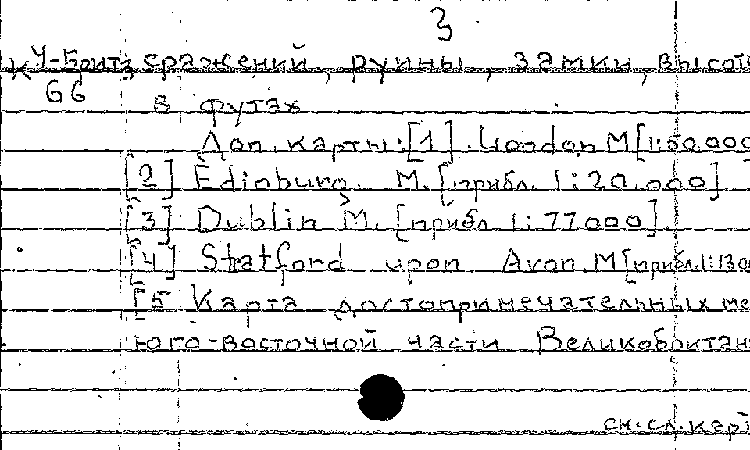 3
К Ч-Брит. сражений, руины, замки, высоты
66 в футах
Доп. карты: [1]. London M [1:60000
[2] Edinburg. M. [прибл. 1:20.000]
[3] Dublin M. [прибл 1:77000]
[4] Statford upon Avon. M [прибл. 1:130
[5 Карта достопримечательных ме
юго-восточной части Великобритан
см. сл. карт